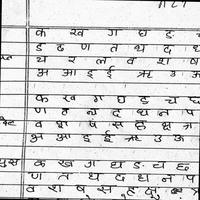 क ख ग घ ङ च
ड ढ ण त थ द ध
य र ल व श ष
अ आ इ ई ऋ उ ऊ
क ख ग घ ङ च छ
ण त थ द ध न प
व श ष स ह क्ष त्र
अ आ इ ई ऋ उ ऊ
क ख ग घ ङ च छ
ण त थ द ध न प
व श ष स ह क्ष त्र